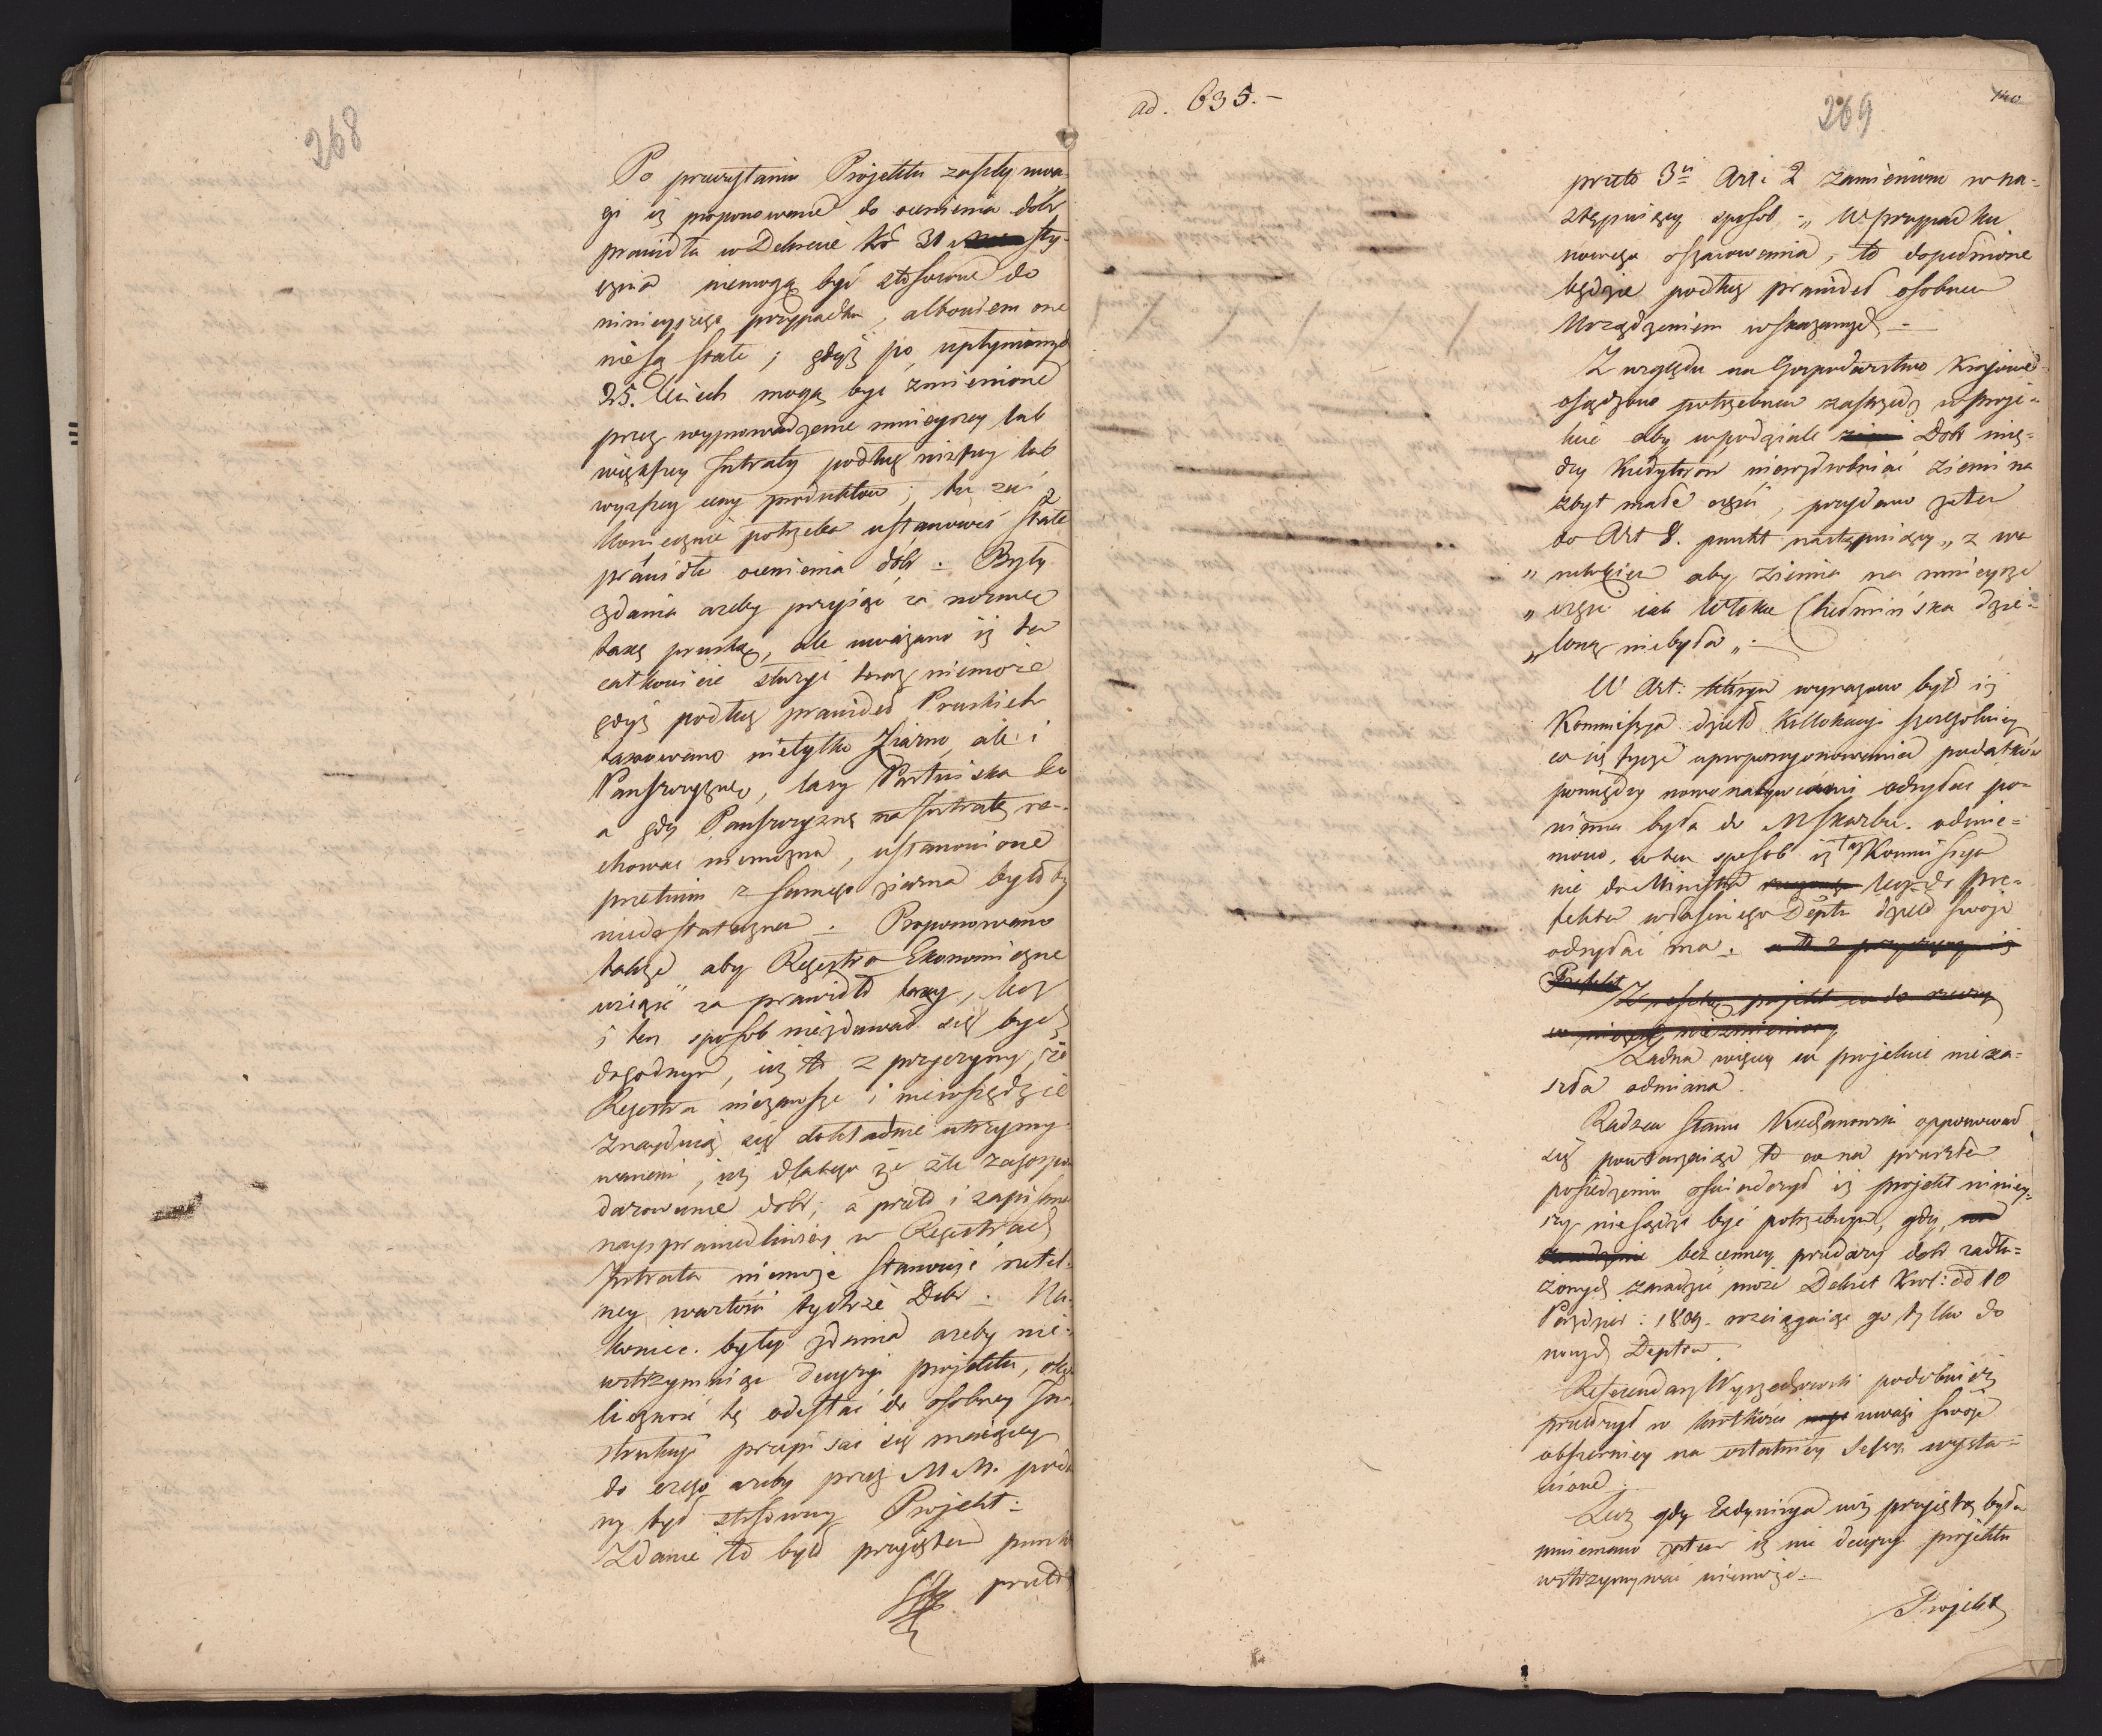 268
Po przeczytaniu Projektu zaszły uwa-
gi iż proponowane do ocenienia dóbr
prawidła w Dekrecie Kr 31 sty-
cznia niemogą być stosowane do
ninieyszego przypadku, albowiem one
niesą stałe; gdyż po upłynionych
25. leciech mogą być zmienione
przez wyprowadzenie mnieyszey lub
większey Intraty podług niższey lub
wyższey ceny produktów; tu zaś
koniecznie potrzeba ustanowić stałe
prawidła ocenienia dóbr. Były
zdania ażeby przyjąć za normę
taxę pruską, ale uważano iż ta
całkowicie służyć teraz niemoże
gdyż podług prawideł Pruskich
taxowano nietylko Ziarno, ale i
Pańszczyznę, lasy Pastwiska &c
a gdy Pańszczyznę na Intratę ra-
chować niemożna, ustanowione
pretium z samego ziarna byłoby
niedostateczne. Proponowano
także aby Regestra Ekonomiczne
wziąść za prawidło taxy, lecz
i ten sposób niezdawał się bydź
dogodnym, iuż to z przyczyny, że
Regestra niezawsze i niewszędzie
znayduią się dokładnie utrzymy-
wanemi, iuż dlatego że źle zagospo-
darowanie dóbr, a przeto i zapisana
naysprawiedliwiey w Regestrach
Intrata niemoże stanowić rzetel-
ney wartości tychże Dóbr. Na-
koniec były zdania ażeby nie-
wstrzymuiąc decyzyi projektu, oko-
liczność tę odesłać do osobney In-
strukcyi przepisać się maiącey
do czego ażeby przez MM. poda-
ny był stosowny Projekt.
Zdanie to było przyiętem
przeto
ad. 635.
269
140
przeto 3ci Art: 2 zamieniono w na-
stępuiący sposób „W przypadku
nowego oszacowania, to dopełnione
będzie podług prawideł osobnem
Urządzeniem wskazanych
Z względu na Gospodarstwo Kraiowe
osądzono potrzebnem zastrzedz w proje-
kcie aby w podziale Dóbr mię-
dzy kredytorów nierozdrobniać ziemi na
zbyt małe części, przydano zatem
do Art 8. punkt następuiący „z wa-
„runkiem aby ziemia na mnieysze
„części iak Włoka Chełmińska dzie-
„loną niebyła„
W Art: którym wyrażono było iż
Kommissya dzieło Kollokacyi szczególniey
co się tycze uproporcyonowania podatków
pomiędzy nowonabywcami odsyłać po-
winna była do M Skarbu. odmie-
niono, w ten sposób iż taż Kommissya
nie do Ministra lecz do Pre-
fekta właściwego Deptu dzieło swoje
odsyłać ma.
Żadna więcey w projekcie nieza-
szła odmiana.
Radzca Stanu Kochanowski opponował
się powtarzaiąc to co na przeszłem
posiedzeniu oświadczył iż projekt niniey-
szy niesądzi być potrzebnym, gdy
bezcenney przedaży dóbr zadłu-
żonych zaradzić może Dekret Król: dd 10
Paździer: 1809. rozciągaiąc go tylko do
nowych Deptów.
Referendarz Wyczechowski podobnież
przełożył w krótkości uwagi swoje
obszerniey na ostatniey Sessyi wysta-
wione.
Lecz gdy iuż przyiętą była
mniemano zatem iż nic decyzyi projektu
wstrzymywać niemoże.
Projekt